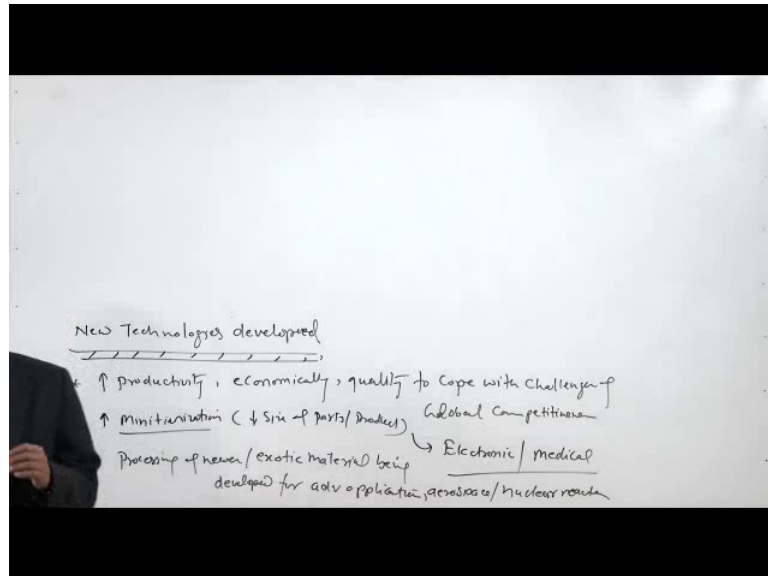 New Technologies developed
↑ productivity, economically, quality to cope with challenges of
Global Competitiveness
↑ Minitianization (↓ Size of parts/Product)
↳ Electronic/medical
Processing of newer/exotic material being
developed for adv application, aerospace/nuclear reactor